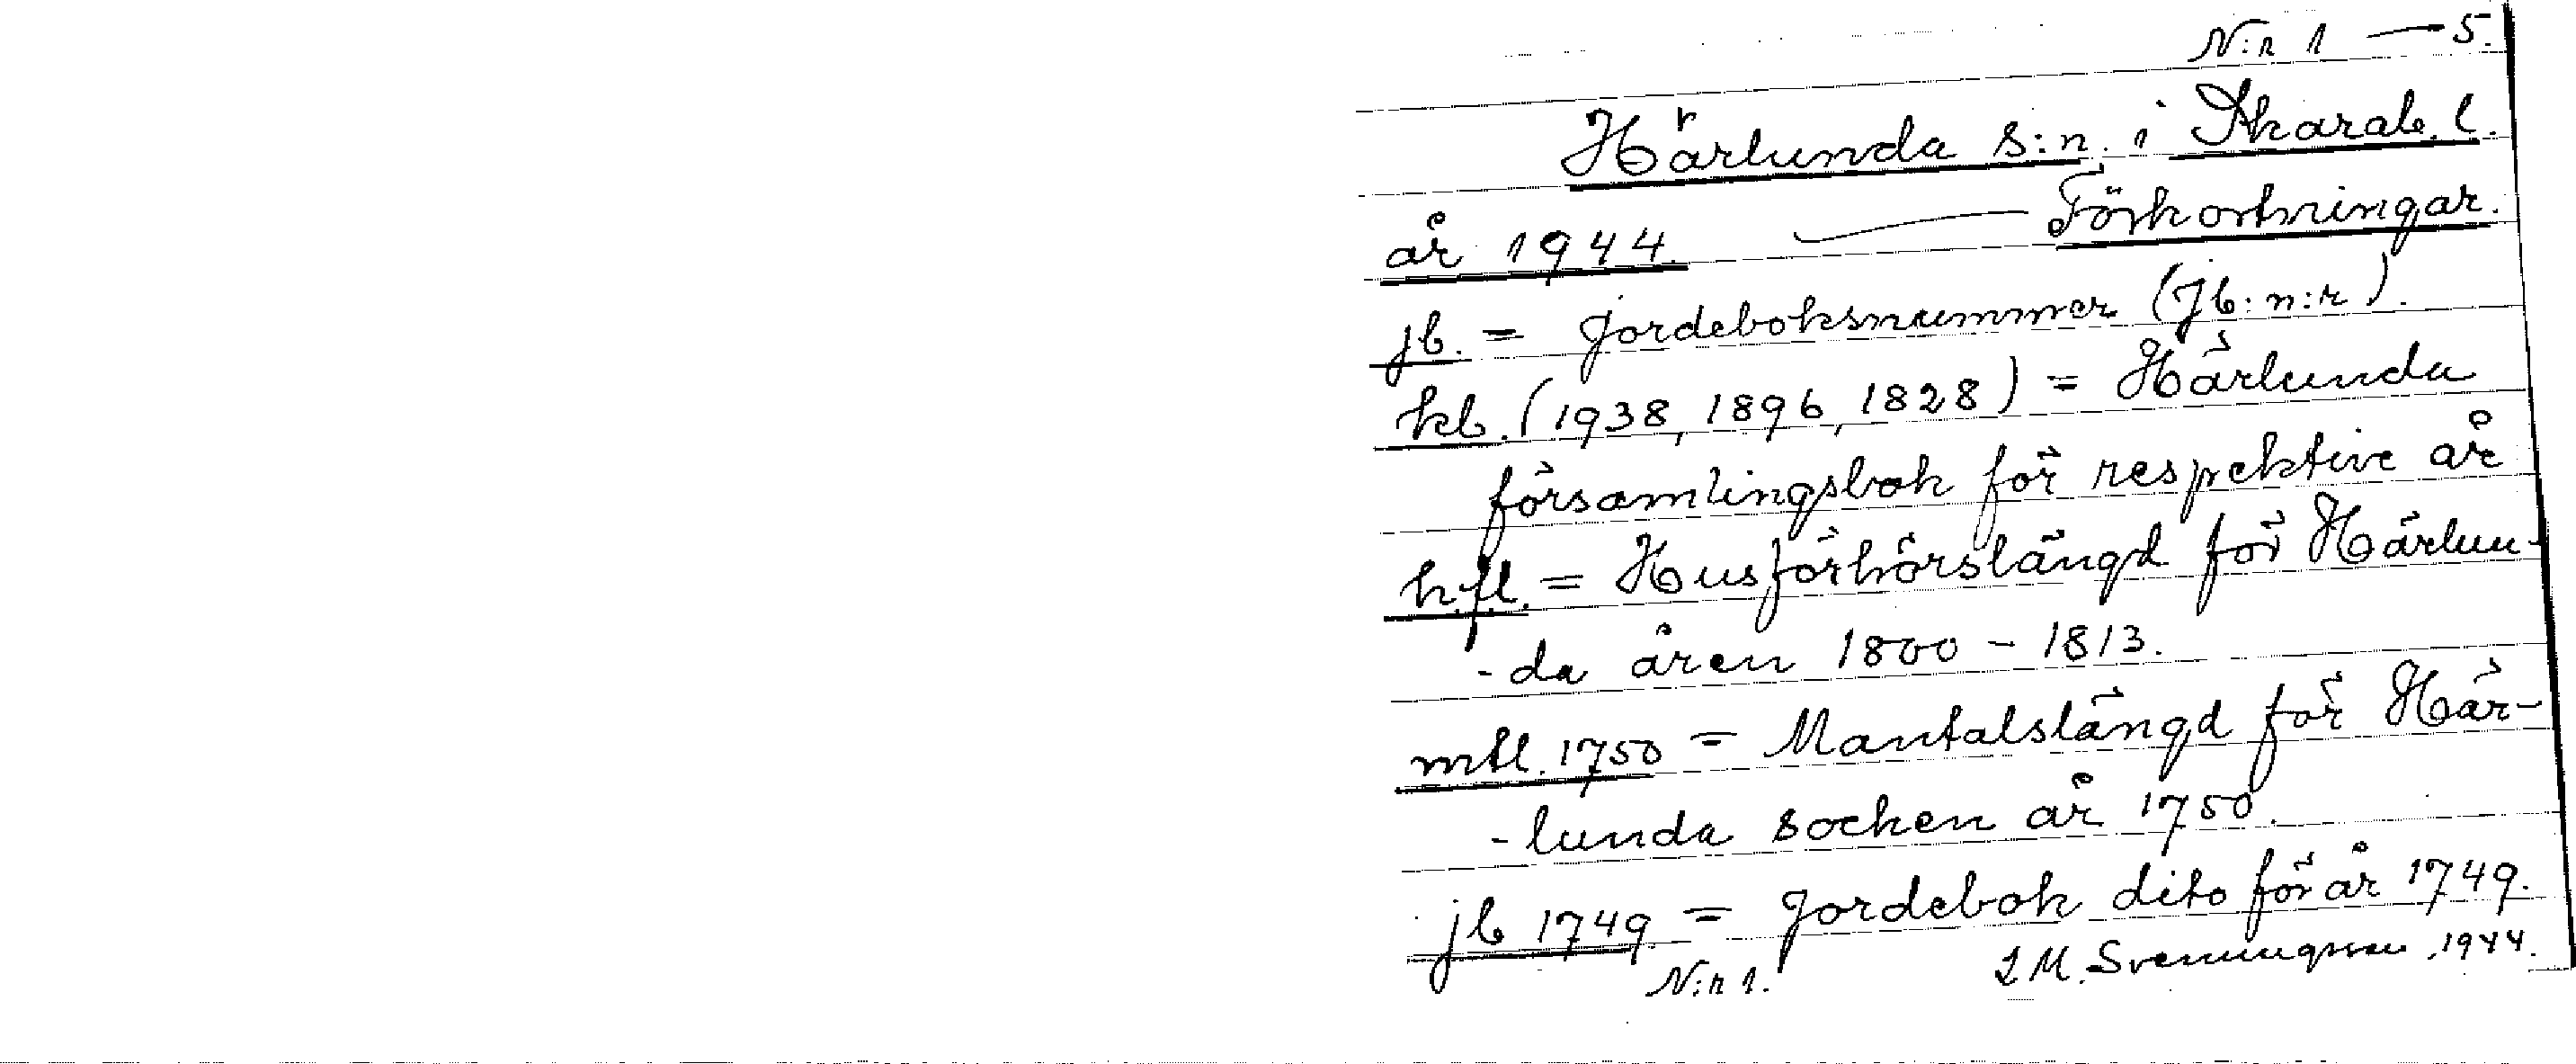 N:r 1 — 5.
Härlunda s:n. i Skarab. l.
år 1944. — Förkortningar.
jb. = jordeboksnummer (Jb: n:r).
kb. (1938, 1896, 1828) = Härlunda
församlingsbok för respektive år
h.f.l. = Husförhörslängd för Härlun-
-da åren 1800 - 1813.
mtl. 1750 = Mantalslängd för Här-
-lunda socken år 1750.
jb 1749 = jordebok dito för år 1749.
N:r 1. L M. Svenungsson, 1944.